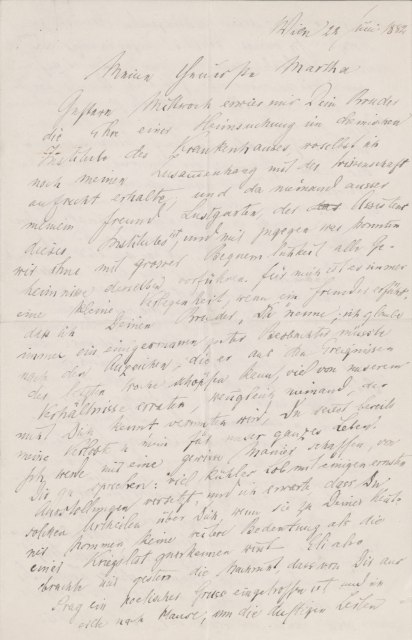 Wien 22 Juni 1882
Meine teuerste Martha
Gestern Mittwoch erwies mir Dein Bruder
die Ehre einer Heimsuchung im chemischen
Institute des Krankenhauses woselbst ich
noch meinen Zusammenhang mit der Wissenschaft
aufrecht erhalte, und da niemand ausser
meinem Freund Lustgarten, der Assistent
dieses Instituts ist, und mir zugegen war konnten
wir ihm mit grosser Bequemlichkeit alle Ge-
heimnisse derselben vorführen. Für mich ist es immer
eine kleine Verlegenheit, wenn ein Fremder erfährt
dass ich Deinen Bruder, Du nenne; ich glaube
immer ein guter Beobachter müsste
nach den die er aus den Ereignissen
der letzten Woche schöpfen kann, viel von unserem
Verhältnisse erraten, wenngleich niemand, der
nicht Dich kennt vermuten wird, Du seiest bereits
meine für unser ganzes Leben.
Ich werde mir eine gewisse Manier schaffen, von
Dir zu sprechen: viel kühles Lob mit einigen ernsten
Ausstellungen versetzt und ich erwarte dass Du
solchen Urteilen über Dich, wenn sie zu Deiner
kommen keine weitere Bedeutung als die
einer Kriegslist zuerkennen wirst. Eli also
brachte mir gestern die dass von Dir aus
Prag ein poetischer eingetroffen ist und
nach Hause, um die Zeilen